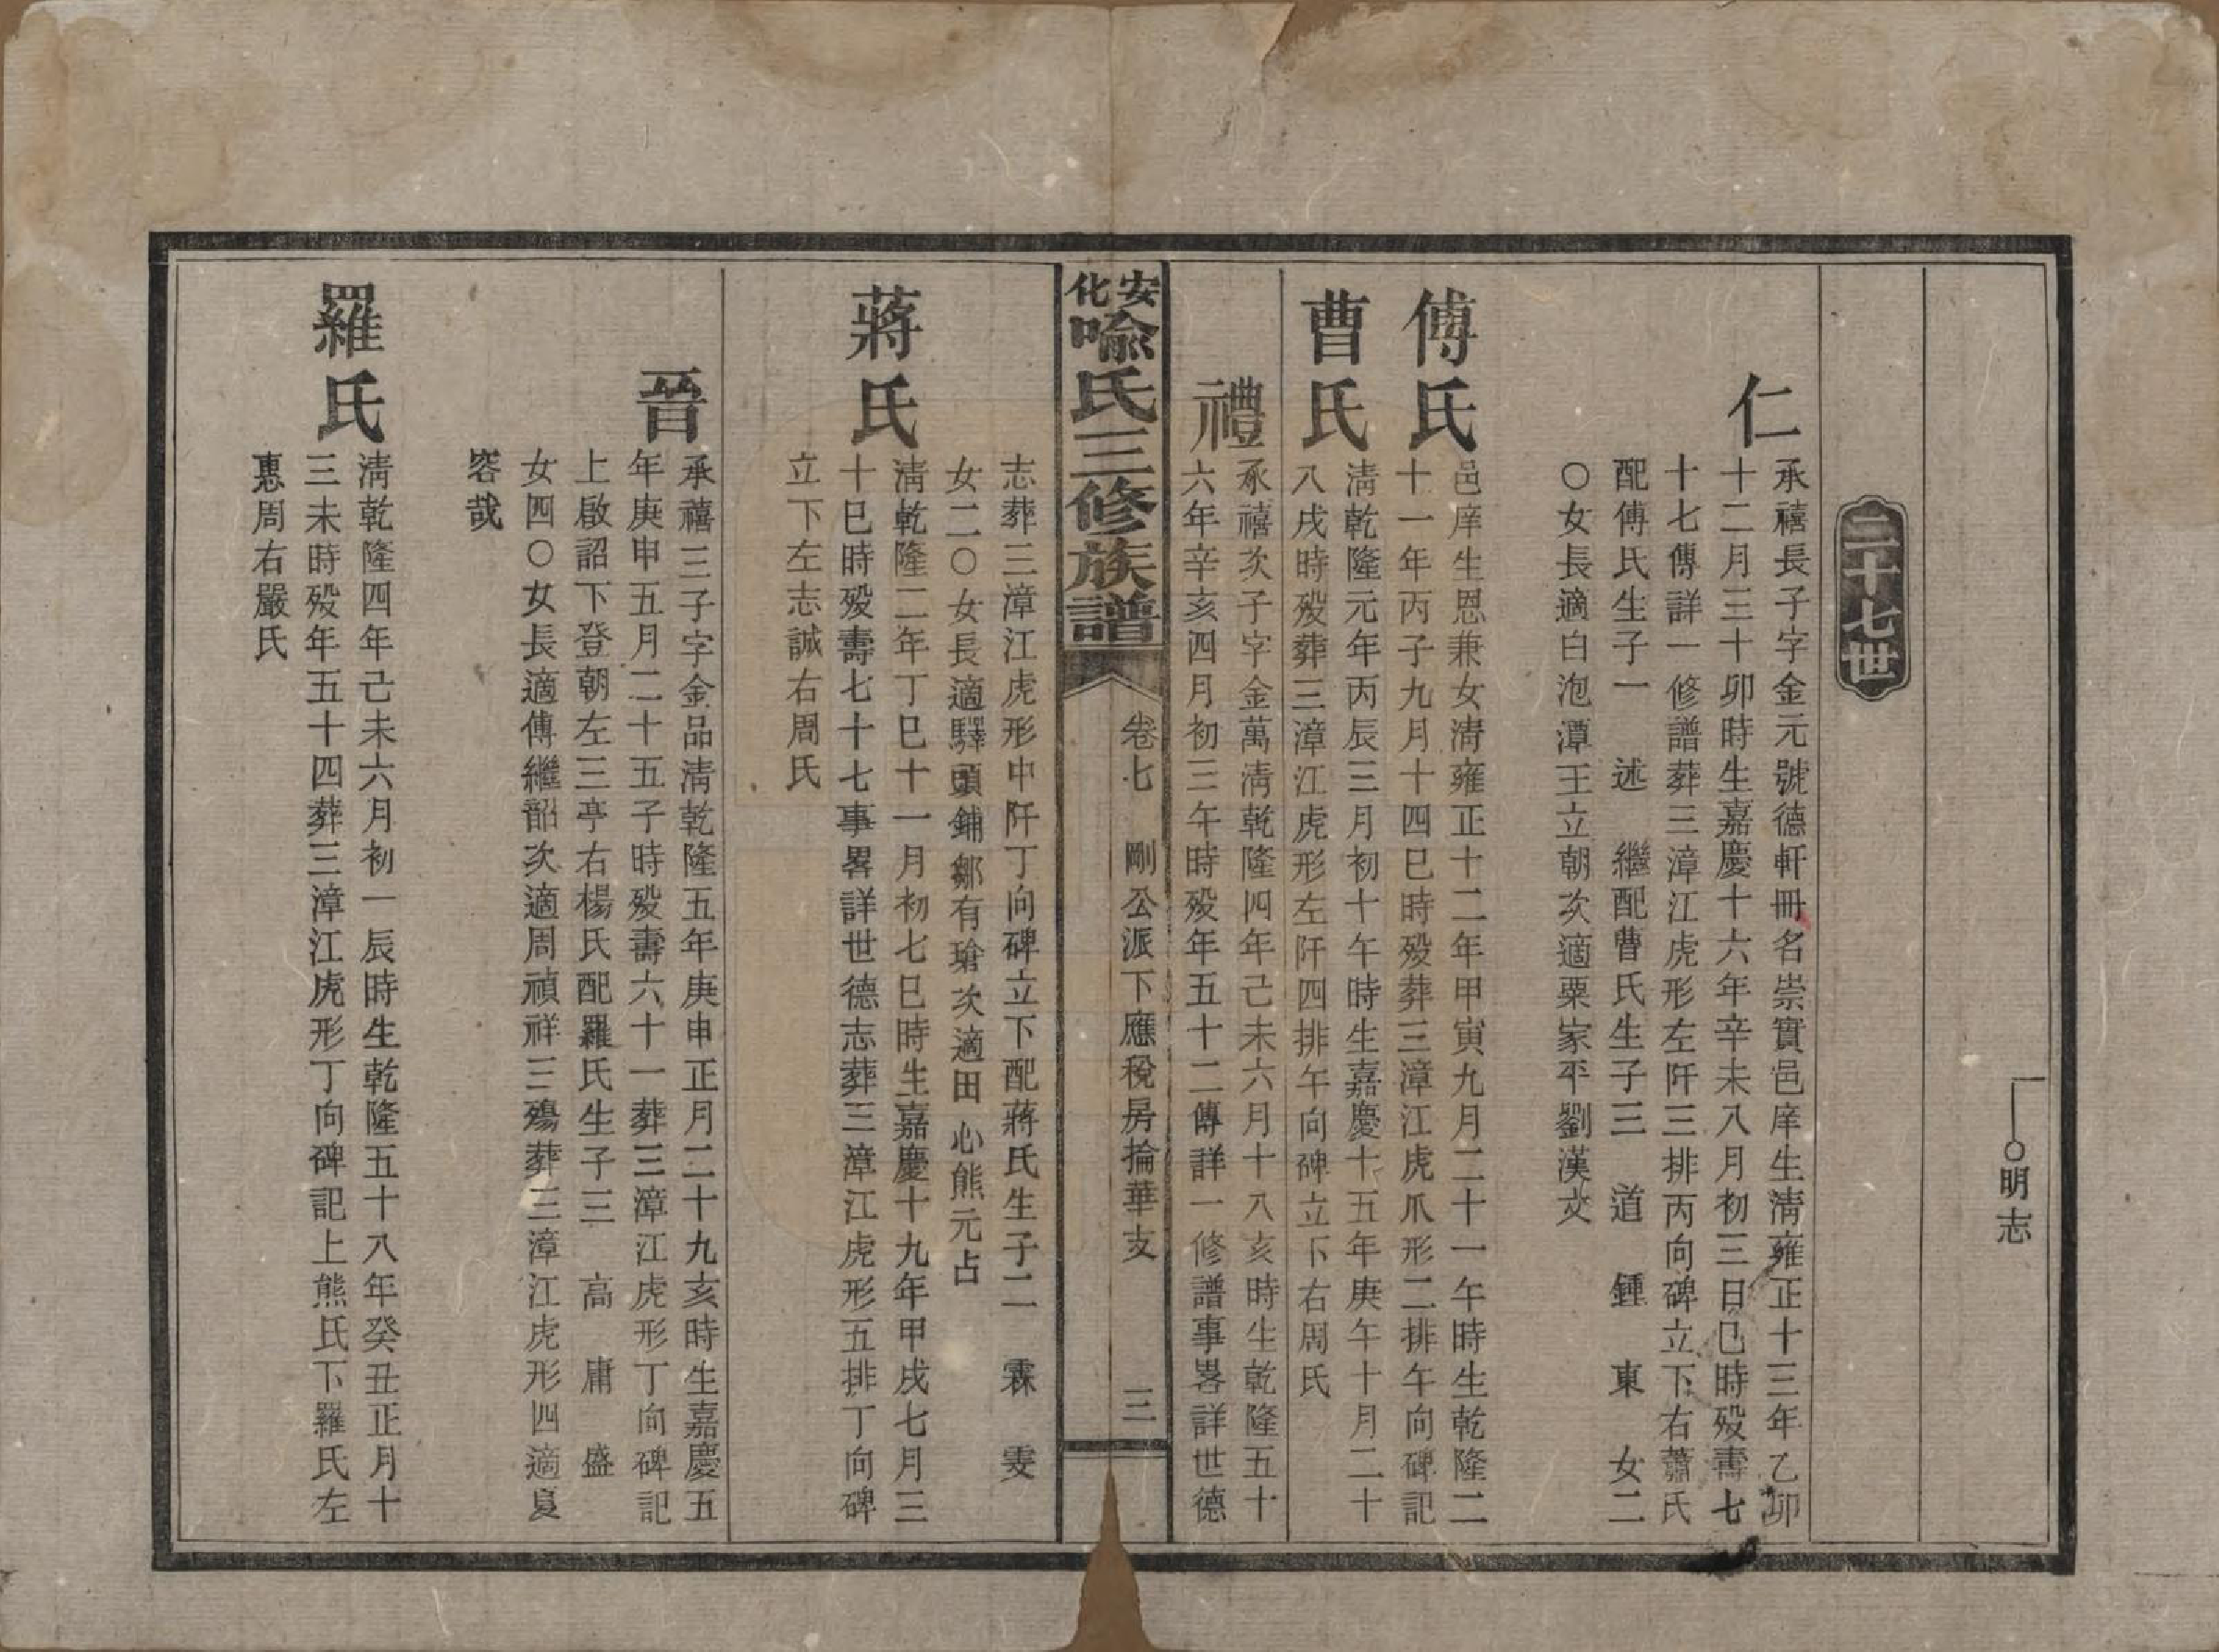 明志
二十七世
仁
承禧長子字金元號德軒冊名崇實邑庠生淸雍正十三年乙卯
十二月三十卯時生嘉慶十六年辛未八月初三日巳時殁壽七
十七傳詳一修譜葬三漳江虎形左阡三排丙向碑立下右蕭氏
配傅氏生子一 述 繼配曹氏生子三 道 鍾 東 女二
○女長適白泡潭王立朝次適粟家平劉漢文
傅氏
邑庠生恩兼女淸雍正十二年甲寅九月二十一午時生乾隆二
十一年丙子九月十四巳時殁葬三漳江虎爪形二排午向碑記
曹氏
淸乾隆元年丙辰三月初十午時生嘉慶十五年庚午十月二十
八戌時殁葬三漳江虎形左阡四排午向碑立下右周氏
禮
承禧次子字金萬淸乾隆四年己未六月十八亥時生乾隆五十
六年辛亥四月初三午時殁年五十二傳詳一修譜事畧詳世德
安化喩氏三修族譜
卷七 剛公派下應稅房掄華支 三
志葬三漳江虎形中阡丁向碑立下配蔣氏生子二 霖 雯
女二○女長適驛頭鋪鄒有瑲次適田心熊元占
蔣氏
淸乾隆二年丁巳十一月初七巳時生嘉慶十九年甲戌七月三
十巳時殁壽七十七事畧詳世德志葬三漳江虎形五排丁向碑
立下左志誠右周氏
晉
承禧三子字金品淸乾隆五年庚申正月二十九亥時生嘉慶五
年庚申五月二十五子時殁壽六十一葬三漳江虎形丁向碑記
上啟詔下登朝左三亭右楊氏配羅氏生子三 高 庸 盛
女四○女長適傅繼韶次適周禎祥三殤葬三漳江虎形四適夏
容哉
羅氏
淸乾隆四年己未六月初一辰時生乾隆五十八年癸丑正月十
三未時殁年五十四葬三漳江虎形丁向碑記上熊氏下羅氏左
惠周右嚴氏